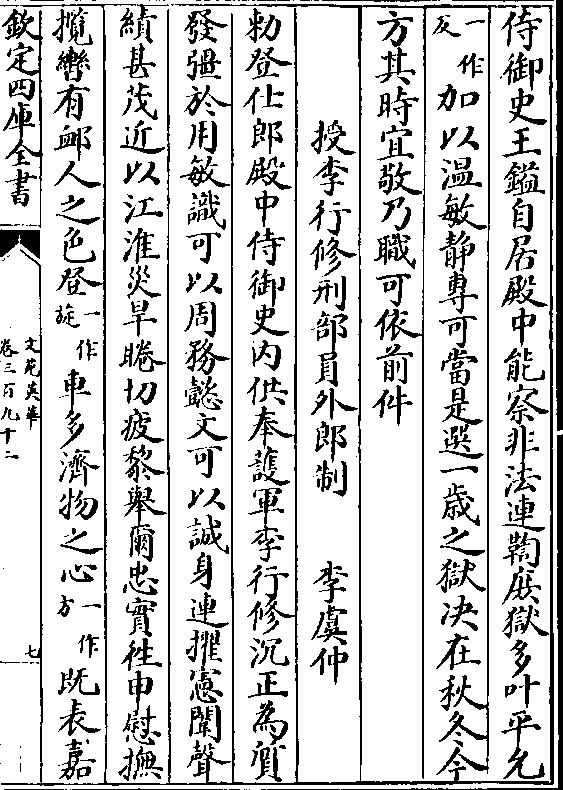 侍御史王鑑自居殿中能察非法連鞫庶獄多叶平允
一作反加以温敏静專可當是選一歳之獄决在秋冬今
方其時宜敬乃職可依前件
授李行修刑部員外郎制　李虞仲
勅登仕郎殿中侍御史内供奉護軍李行修沉正為質
發彊於用敏識可以周務懿文可以誠身連擢憲闈聲
績甚茂近以江淮災旱睠切疲黎舉爾忠實徃申慰撫
攬轡有䘏人之色登一作旋車多濟物之心一作方既表嘉
欽定四庫全書
文苑英華
卷三百九十二
七